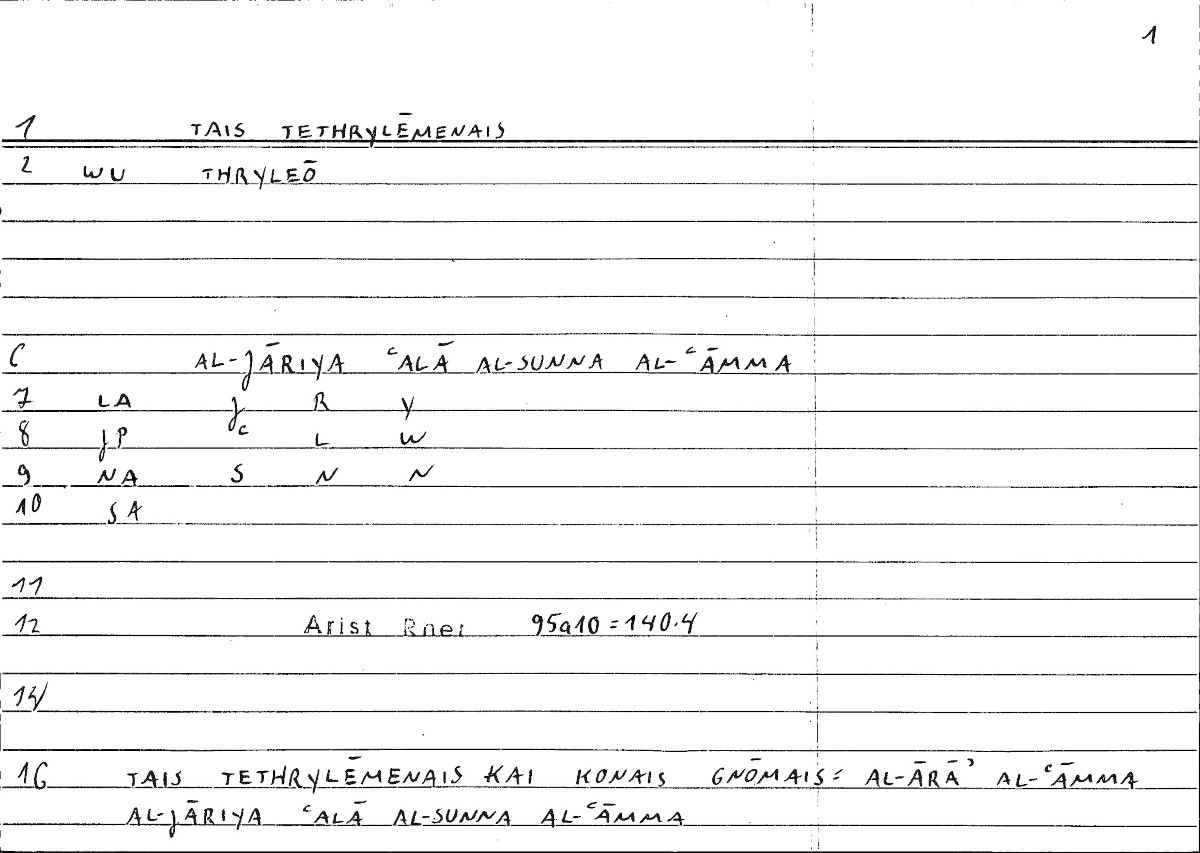 1
1 TAIS TETHRYLĒMENAIS
2 WU THRYLEŌ
6 AL-JĀRIYA ʿALĀ AL-SUNNA AL-ʿĀMMA
7 LA J R Y
8 JP ʿ L W
9 NA S N N
10 SA
11
12 Arist Rhet 95a10=140.4
16 TAIS TETHRYLĒMENAIS KAI KONAIS GNŌMAIS: AL-ĀRĀʾ AL-ʿĀMMA
AL-JĀRIYA ʿALĀ AL-SUNNA AL-ʿĀMMA